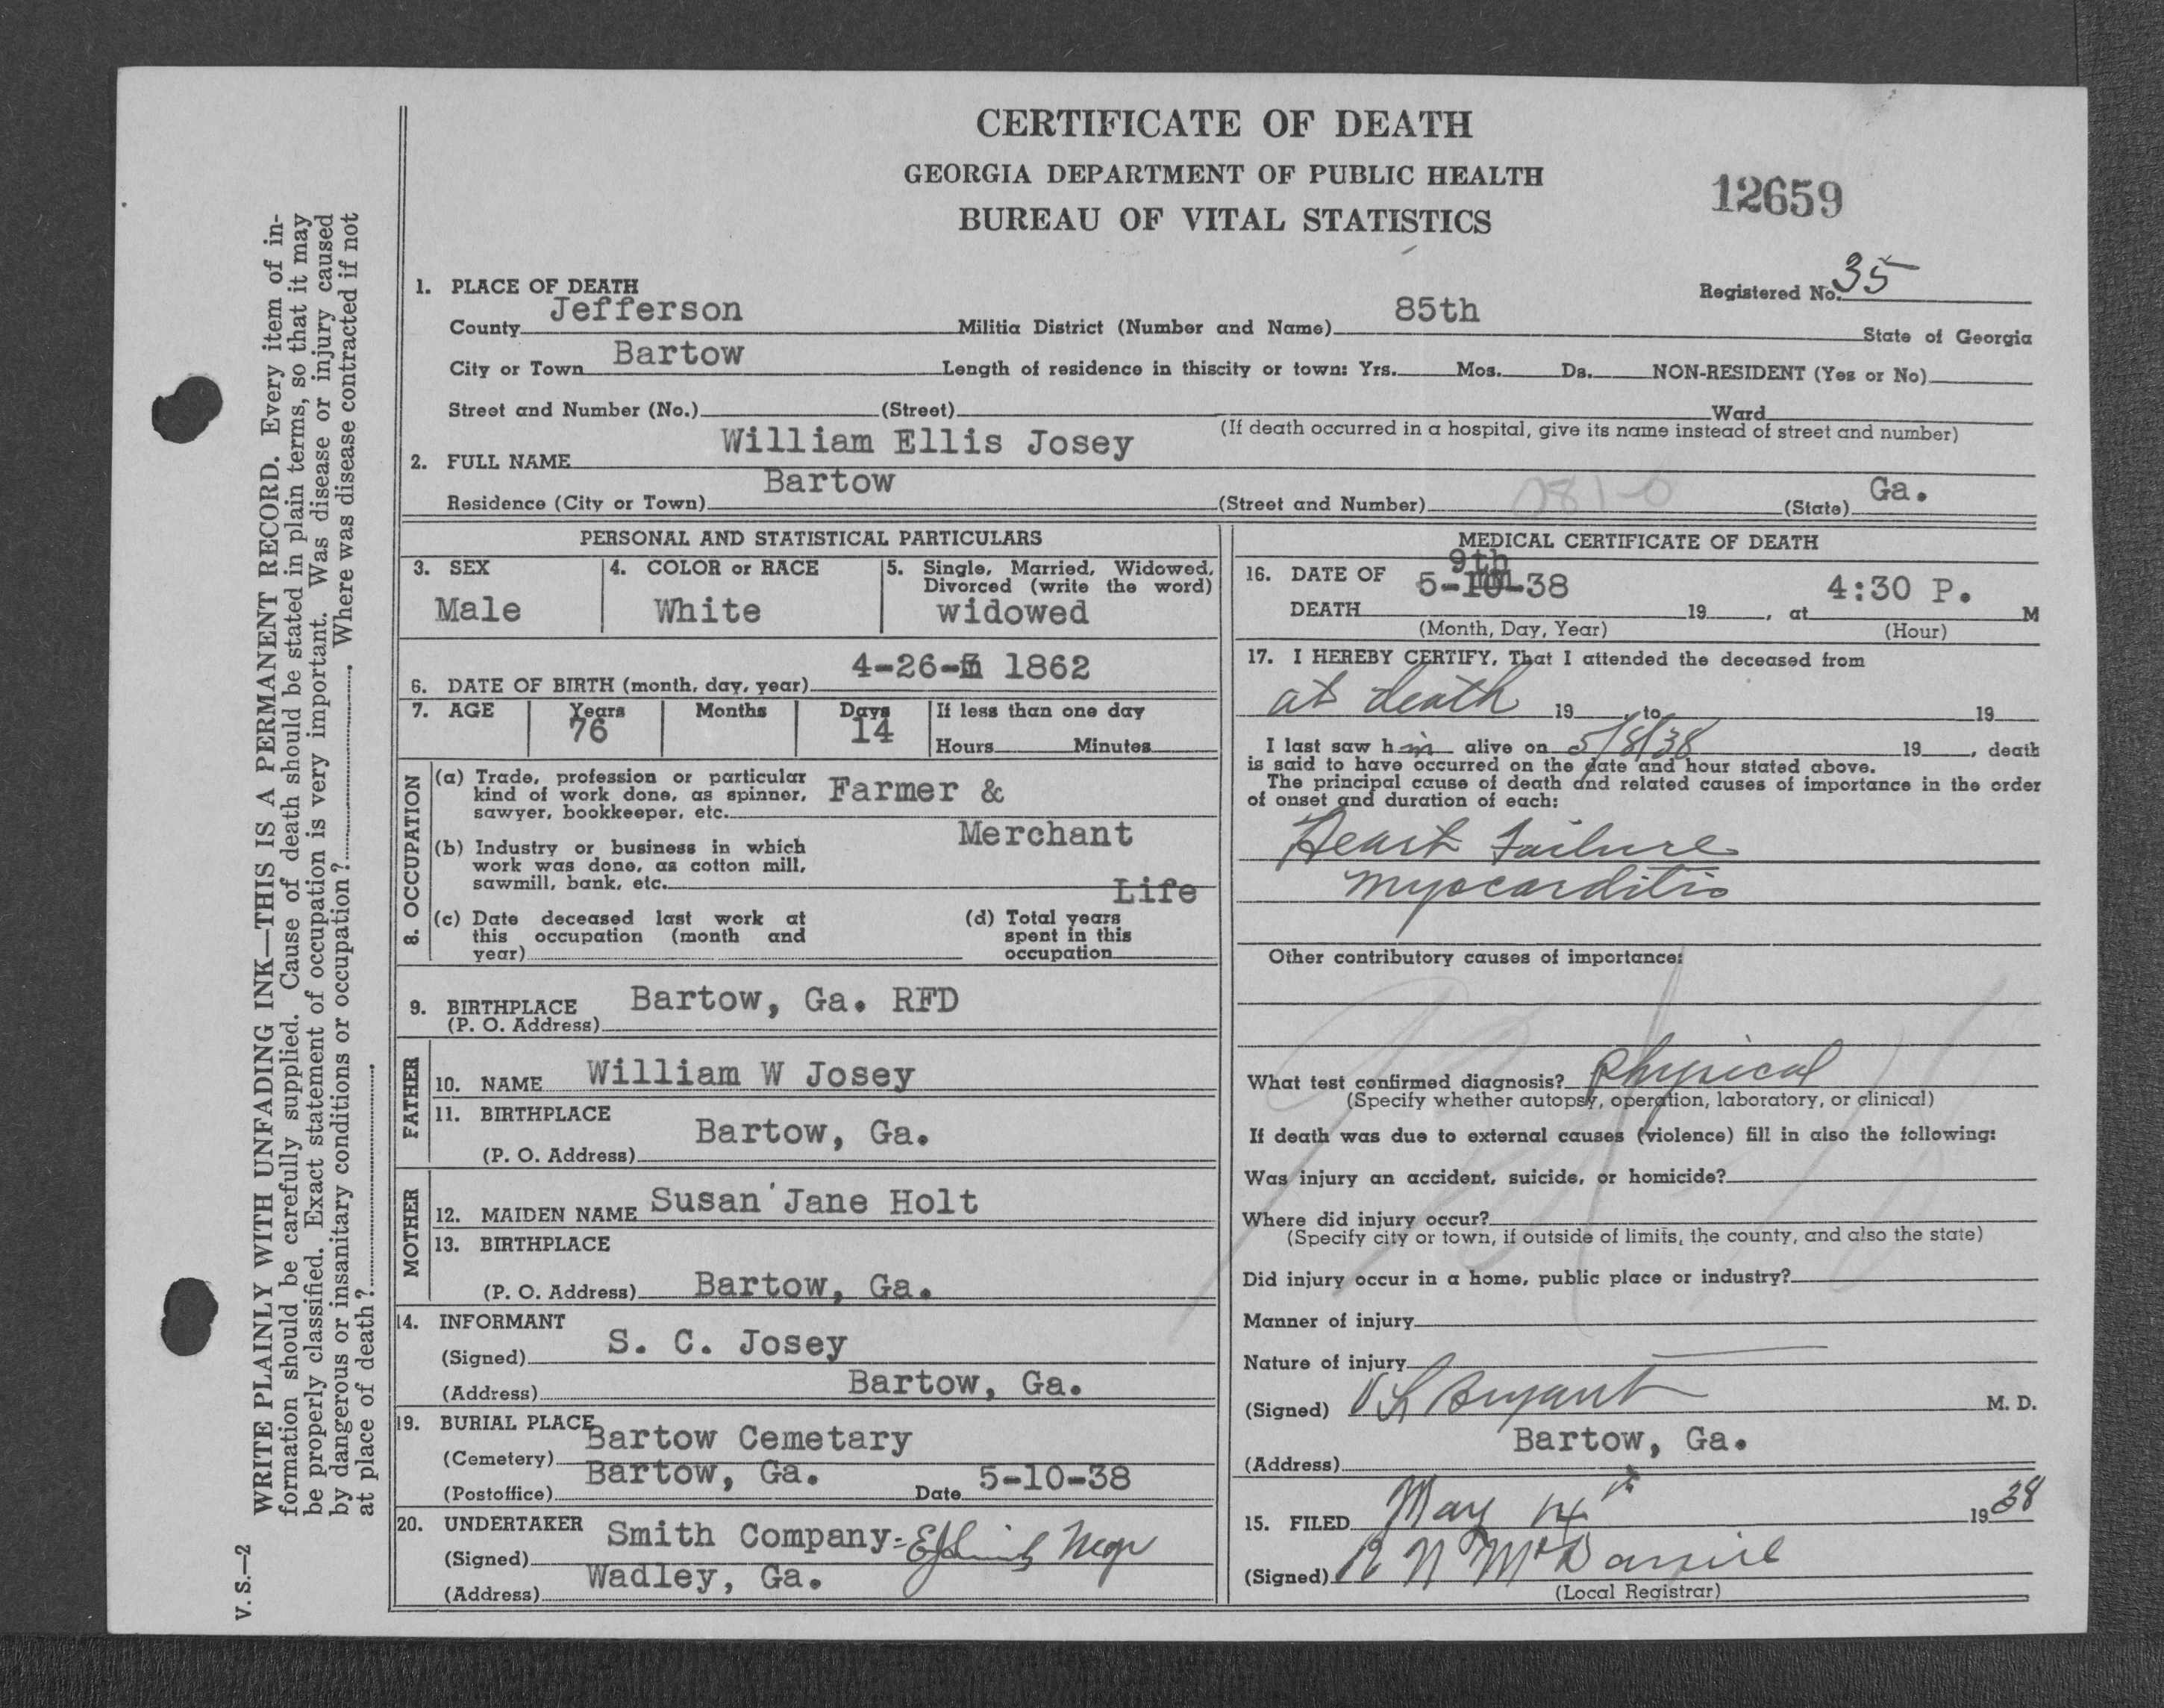 CERTIFICATE OF DEATH
GEORGIA DEPARTMENT OF PUBLIC HEALTH
BUREAU OF VITAL STATISTICS
12659
Registered No. 35
1. PLACE OF DEATH
County Jefferson Militia District (Number and Name) 85th State of Georgia
City or Town Bartow Length of residence in thiscity or town: Yrs. Mos. Ds. NON-RESIDENT (Yes or No)
Street and Number (No.) (Street) Ward
(If death occurred in a hospital, give its name instead of street and number)
2. FULL NAME William Ellis Josey
Residence (City or Town) Bartow (Street and Number) (State) Ga.
PERSONAL AND STATISTICAL PARTICULARS
3. SEX Male
4. COLOR or RACE White
5. Single, Married, Widowed, Divorced (write the word) widowed
6. DATE OF BIRTH (month, day, year) 4-26- 1862
7. AGE Years 76 Months Days 14 If less than one day
Hours Minutes
8. OCCUPATION
(a) Trade, profession or particular
kind of work done, as spinner,
sawyer, bookkeeper, etc. Farmer &
Merchant
(b) Industry or business in which
work was done, as cotton mill,
sawmill, bank, etc.
Life
(c) Date deceased last work at
this occupation (month and
year)
(d) Total years
spent in this
occupation
9. BIRTHPLACE Bartow, Ga. RFD
(P. O. Address)
FATHER
10. NAME William W Josey
11. BIRTHPLACE
(P. O. Address) Bartow, Ga.
MOTHER
12. MAIDEN NAME Susan Jane Holt
13. BIRTHPLACE
(P. O. Address) Bartow, Ga.
14. INFORMANT
(Signed) S. C. Josey
(Address) Bartow, Ga.
19. BURIAL PLACE
(Cemetery) Bartow Cemetary
(Postoffice) Bartow, Ga. Date 5-10-38
20. UNDERTAKER
(Signed) Smith Company-
(Address) Wadley, Ga.
MEDICAL CERTIFICATE OF DEATH
9th
16. DATE OF DEATH 5-10-38 19 , at 4:30 P. M
(Month, Day, Year) (Hour)
17. I HEREBY CERTIFY, That I attended the deceased from
at death 19 , to 19
I last saw him alive on 5/8/38 19 , death
is said to have occurred on the date and hour stated above.
The principal cause of death and related causes of importance in the order
of onset and duration of each:
Heart Failure
Myocarditis
Other contributory causes of importance:
What test confirmed diagnosis? Physical
(Specify whether autopsy, operation, laboratory, or clinical)
If death was due to external causes (violence) fill in also the following:
Was injury an accident, suicide, or homicide?
Where did injury occur?
(Specify city or town, if outside of limits, the county, and also the state)
Did injury occur in a home, public place or industry?
Manner of injury
Nature of injury
(Signed) Bryant M. D.
(Address) Bartow, Ga.
15. FILED May 14th 1938
(Signed) McDaniel
(Local Registrar)
WRITE PLAINLY WITH UNFADING INK—THIS IS A PERMANENT RECORD. Every item of in-
formation should be carefully supplied. Cause of death should be stated in plain terms, so that it may
be properly classified. Exact statement of occupation is very important. Was disease or injury caused
by dangerous or insanitary conditions or occupation? Where was disease contracted if not
at place of death?
V. S.—2